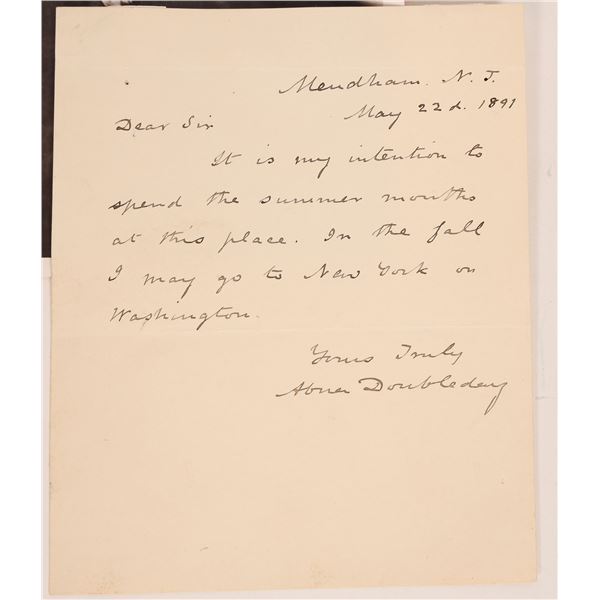 Mendham. N. J.
May 22d. 1891
Dear Sir
It is my intention to
spend the summer months
at this place. In the fall
I may go to New York or
Washington.
Yours Truly
Abner Doubleday